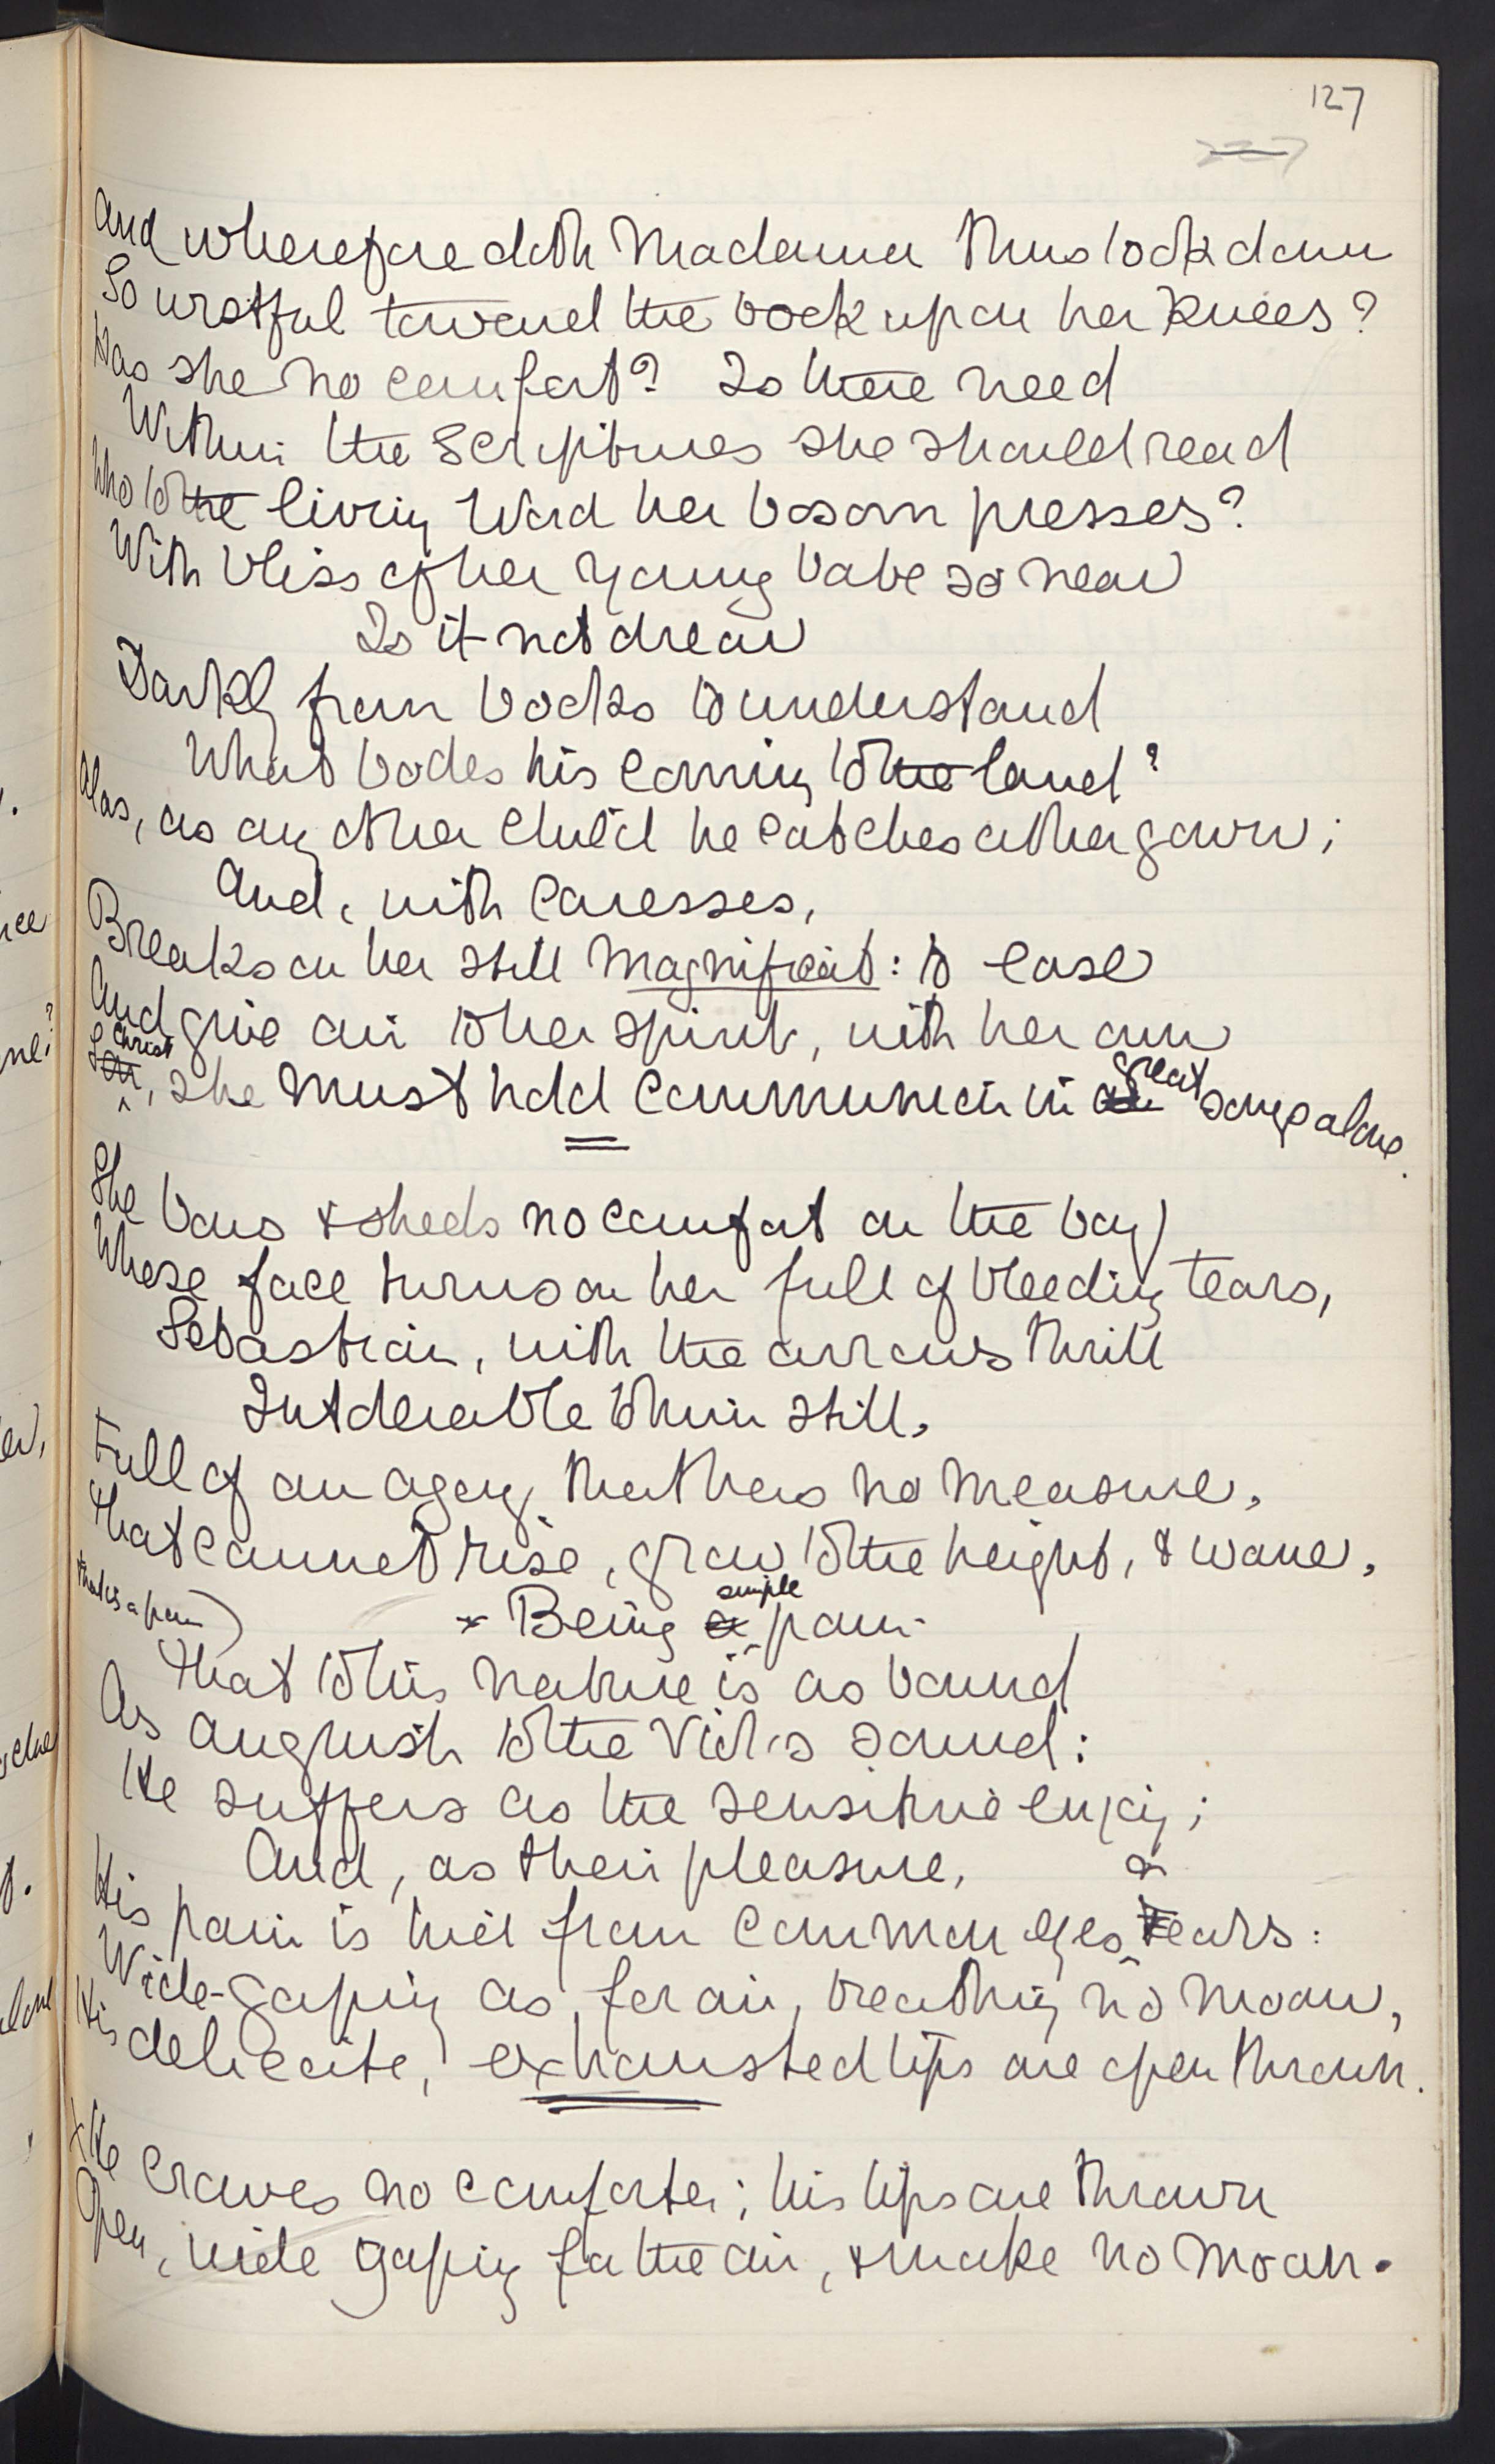 127
And wherefore doth Madonna thus look down
So wistful toward the book upon her knees?
Has she no comfort? Is there need
Within the Scriptures she should read
Who to the living Word her bosom presses?
With bliss of her young babe so near
Is it not drear
Darkly from books to understand
What bodes his coming to the land?
Alas, as any other child he catches at her gown;
And, with caresses,
Breaks on her still Magnificat: to ease
And give air to her spirit, with her own
Christ, she must hold communion in great songs alone.
She bows & sheds no comfort on the boy
Whose face turns on her full of bleeding tears,
Sebastian, with the arrows' thrill
Intolerable to him still,
Full of an agony that has no measure,
That cannot rise, grow to the height, & wane,
that is a pain)
x Being a simple pain
That to his nature is as bound
As anguish to the viol's sound:
He suffers as the sensitive enjoy;
And, as their pleasure,
His pain is hid from common eyes or ears:
Wide-gaping as for air, breathing no moan,
His delicate, exhausted lips are open thrown.
x He craves no comforter; his lips are thrown
Open, wide gaping for the air, & make no moan.